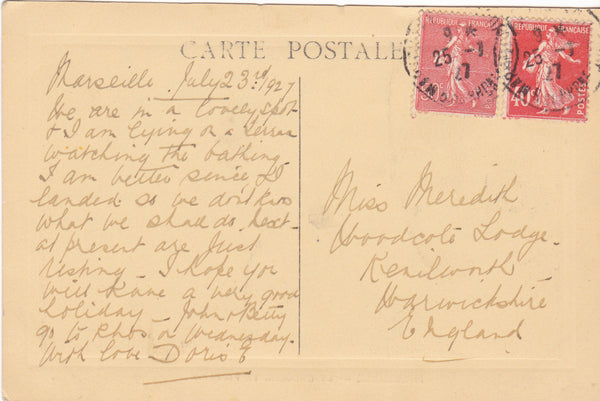 CARTE POSTALE
REPUBLIQUE FRANÇAISE
REPUBLIQUE FRANÇAISE
POSTES
40
9
25 - 7
27
25 - 7
27
Marseille July 23rd 1927
We are in a lovely spot
& I am lying on a terrace
watching the bathing
I am better since I
landed so we don't know
what we shall do next
at present are just
resting - I hope you
will have a very good
holiday - John & Betty
go to Rhos on Wednesday.
With love Doris E
Miss Meredith
Woodcote Lodge.
Kenilworth
Warwickshire
England